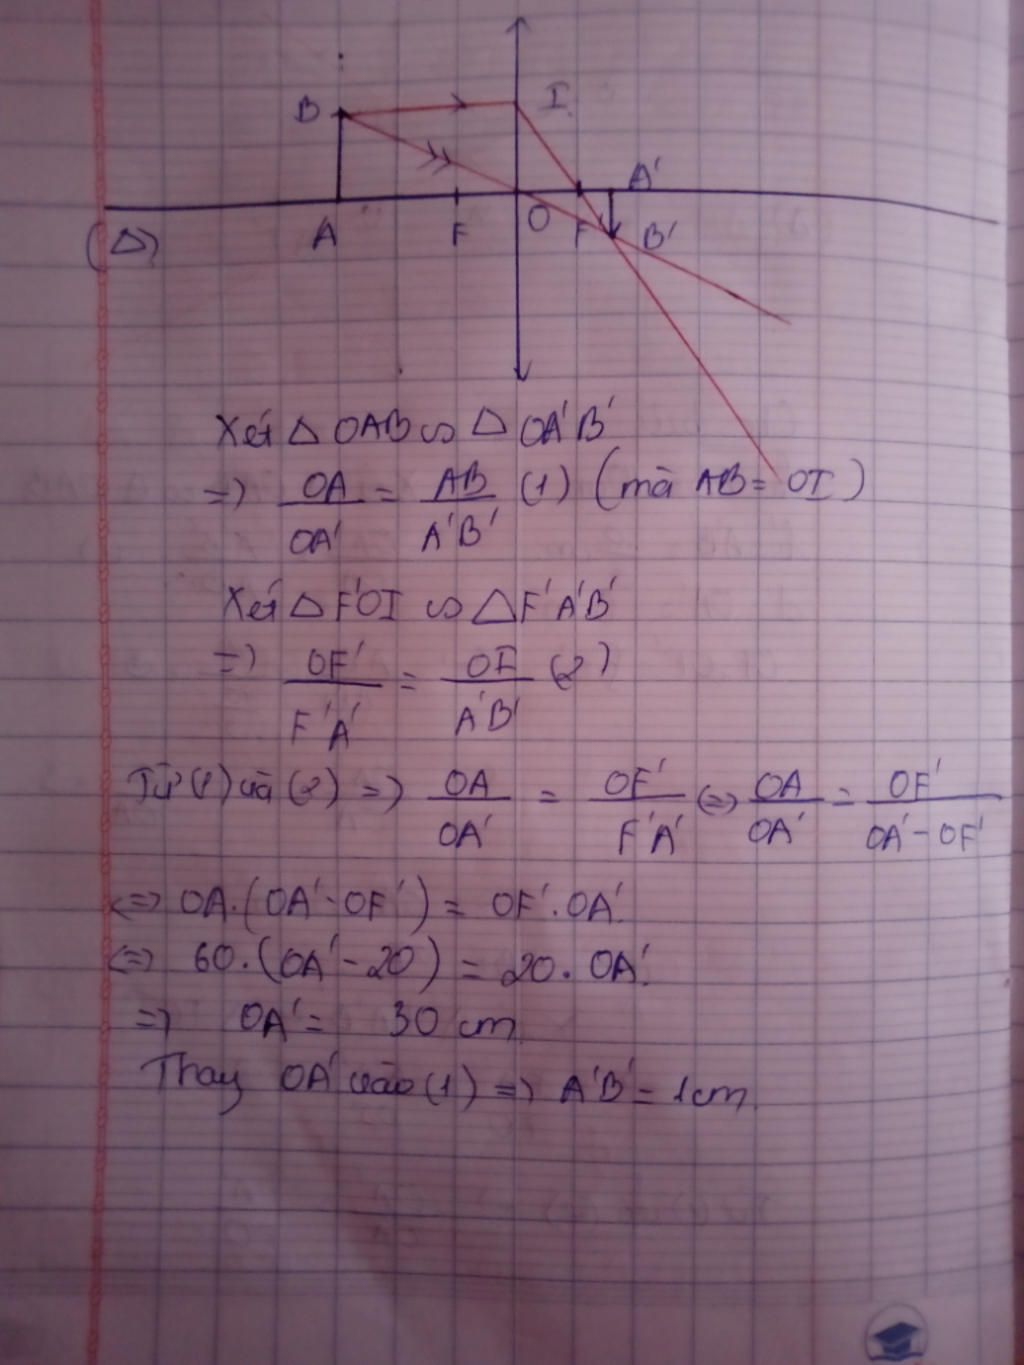 B I
A'
(Δ) A F O F B'
Xét Δ OAB ∽ Δ OA'B'
=) OA/OA' = AB/A'B' (1) (mà AB = OI)
Xét Δ F'OI ∽ Δ F'A'B'
=) OF'/F'A' = OI/A'B' (2)
Từ (1) và (2) =) OA/OA' = OF'/F'A' (=) OA/OA' = OF'/OA' - OF'
<=> OA.(OA' - OF') = OF'.OA'.
<=> 60.(OA' - 20) = 20. OA'.
=) OA' = 30 cm
Thay OA' vào (1) =) A'B' = 1cm.